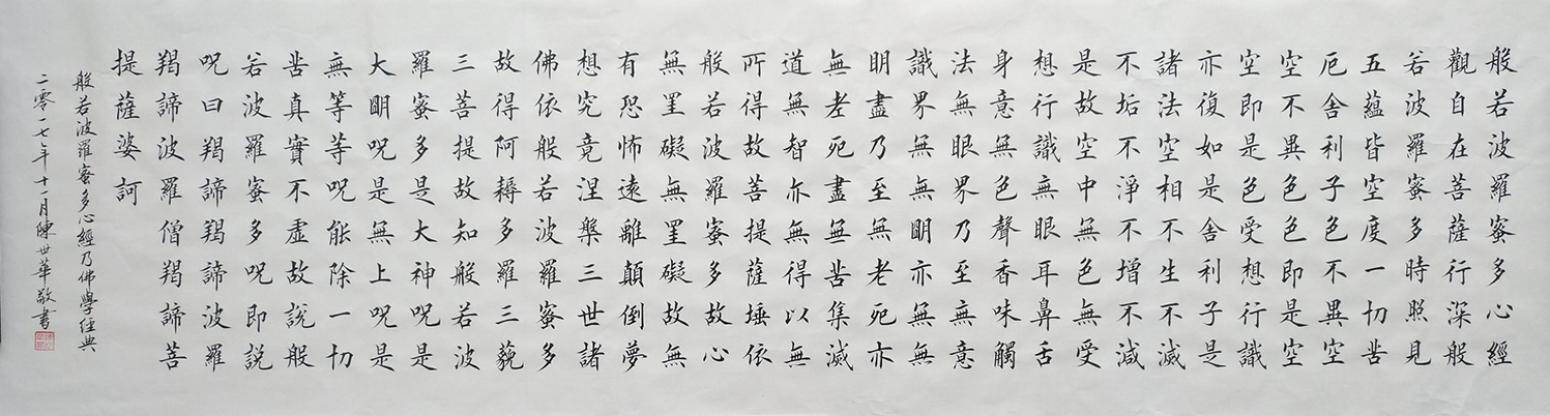 般若波羅蜜多心經
觀自在菩薩行深般
若波羅蜜多時照見
五蘊皆空度一切苦
厄舍利子色不異空
空不異色色即是空
空即是色受想行識
亦復如是舍利子是
諸法空相不生不滅
不垢不淨不增不減
是故空中無色無受
想行識無眼耳鼻舌
身意無色聲香味觸
法無眼界乃至無意
識界無無明亦無無
明盡乃至無老死亦
無老死盡無苦集滅
道無智亦無得以無
所得故菩提薩埵依
般若波羅蜜多故心
無罣礙無罣礙故無
有恐怖遠離顛倒夢
想究竟涅槃三世諸
佛依般若波羅蜜多
故得阿耨多羅三藐
三菩提故知般若波
羅蜜多是大神呪是
大明呪是無上呪是
無等等呪能除一切
苦真實不虛故說般
若波羅蜜多呪即說
呪曰羯諦羯諦波羅
羯諦波羅僧羯諦菩
提薩婆訶
般若波羅蜜多心經乃佛學經典
二零一七年十一月陳世華敬書